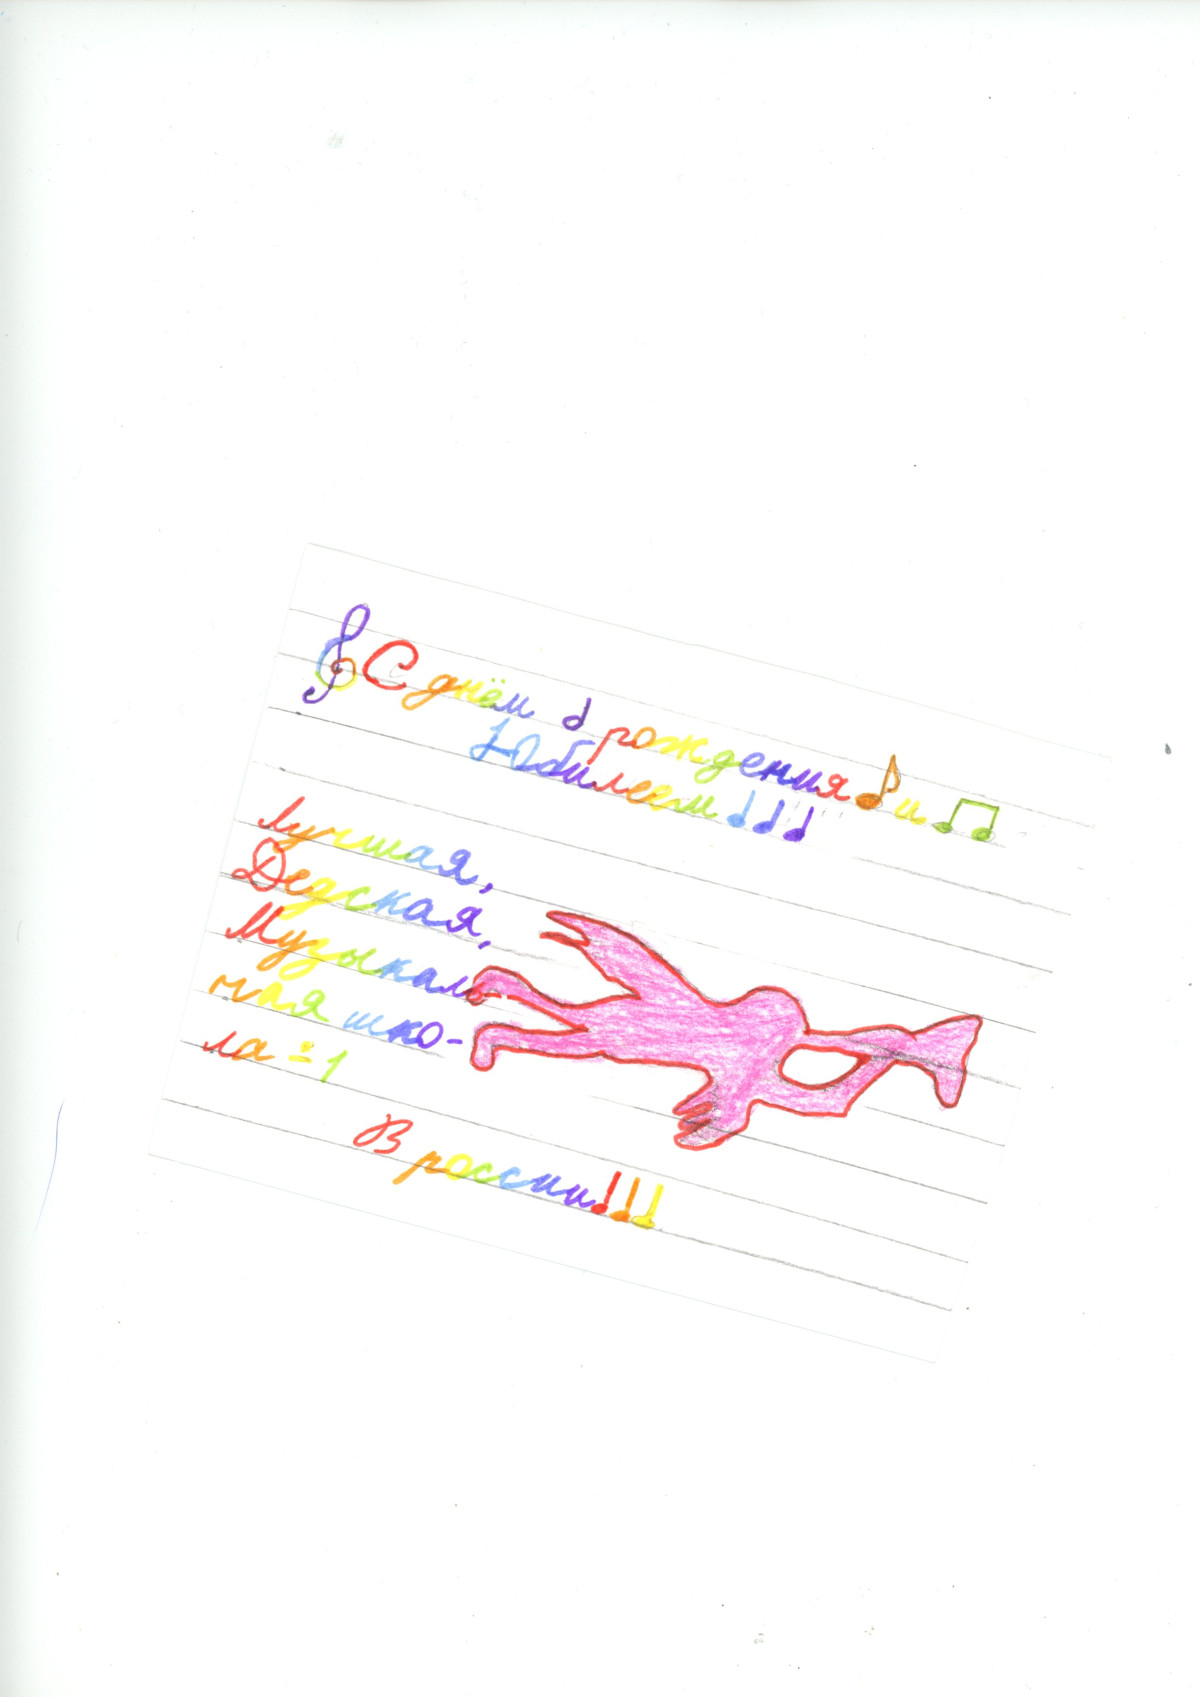 С днём рождения и
Юбилеем
лучшая,
Дедская,
Музыкаль
ная шко-
ла =1
В россии!!!